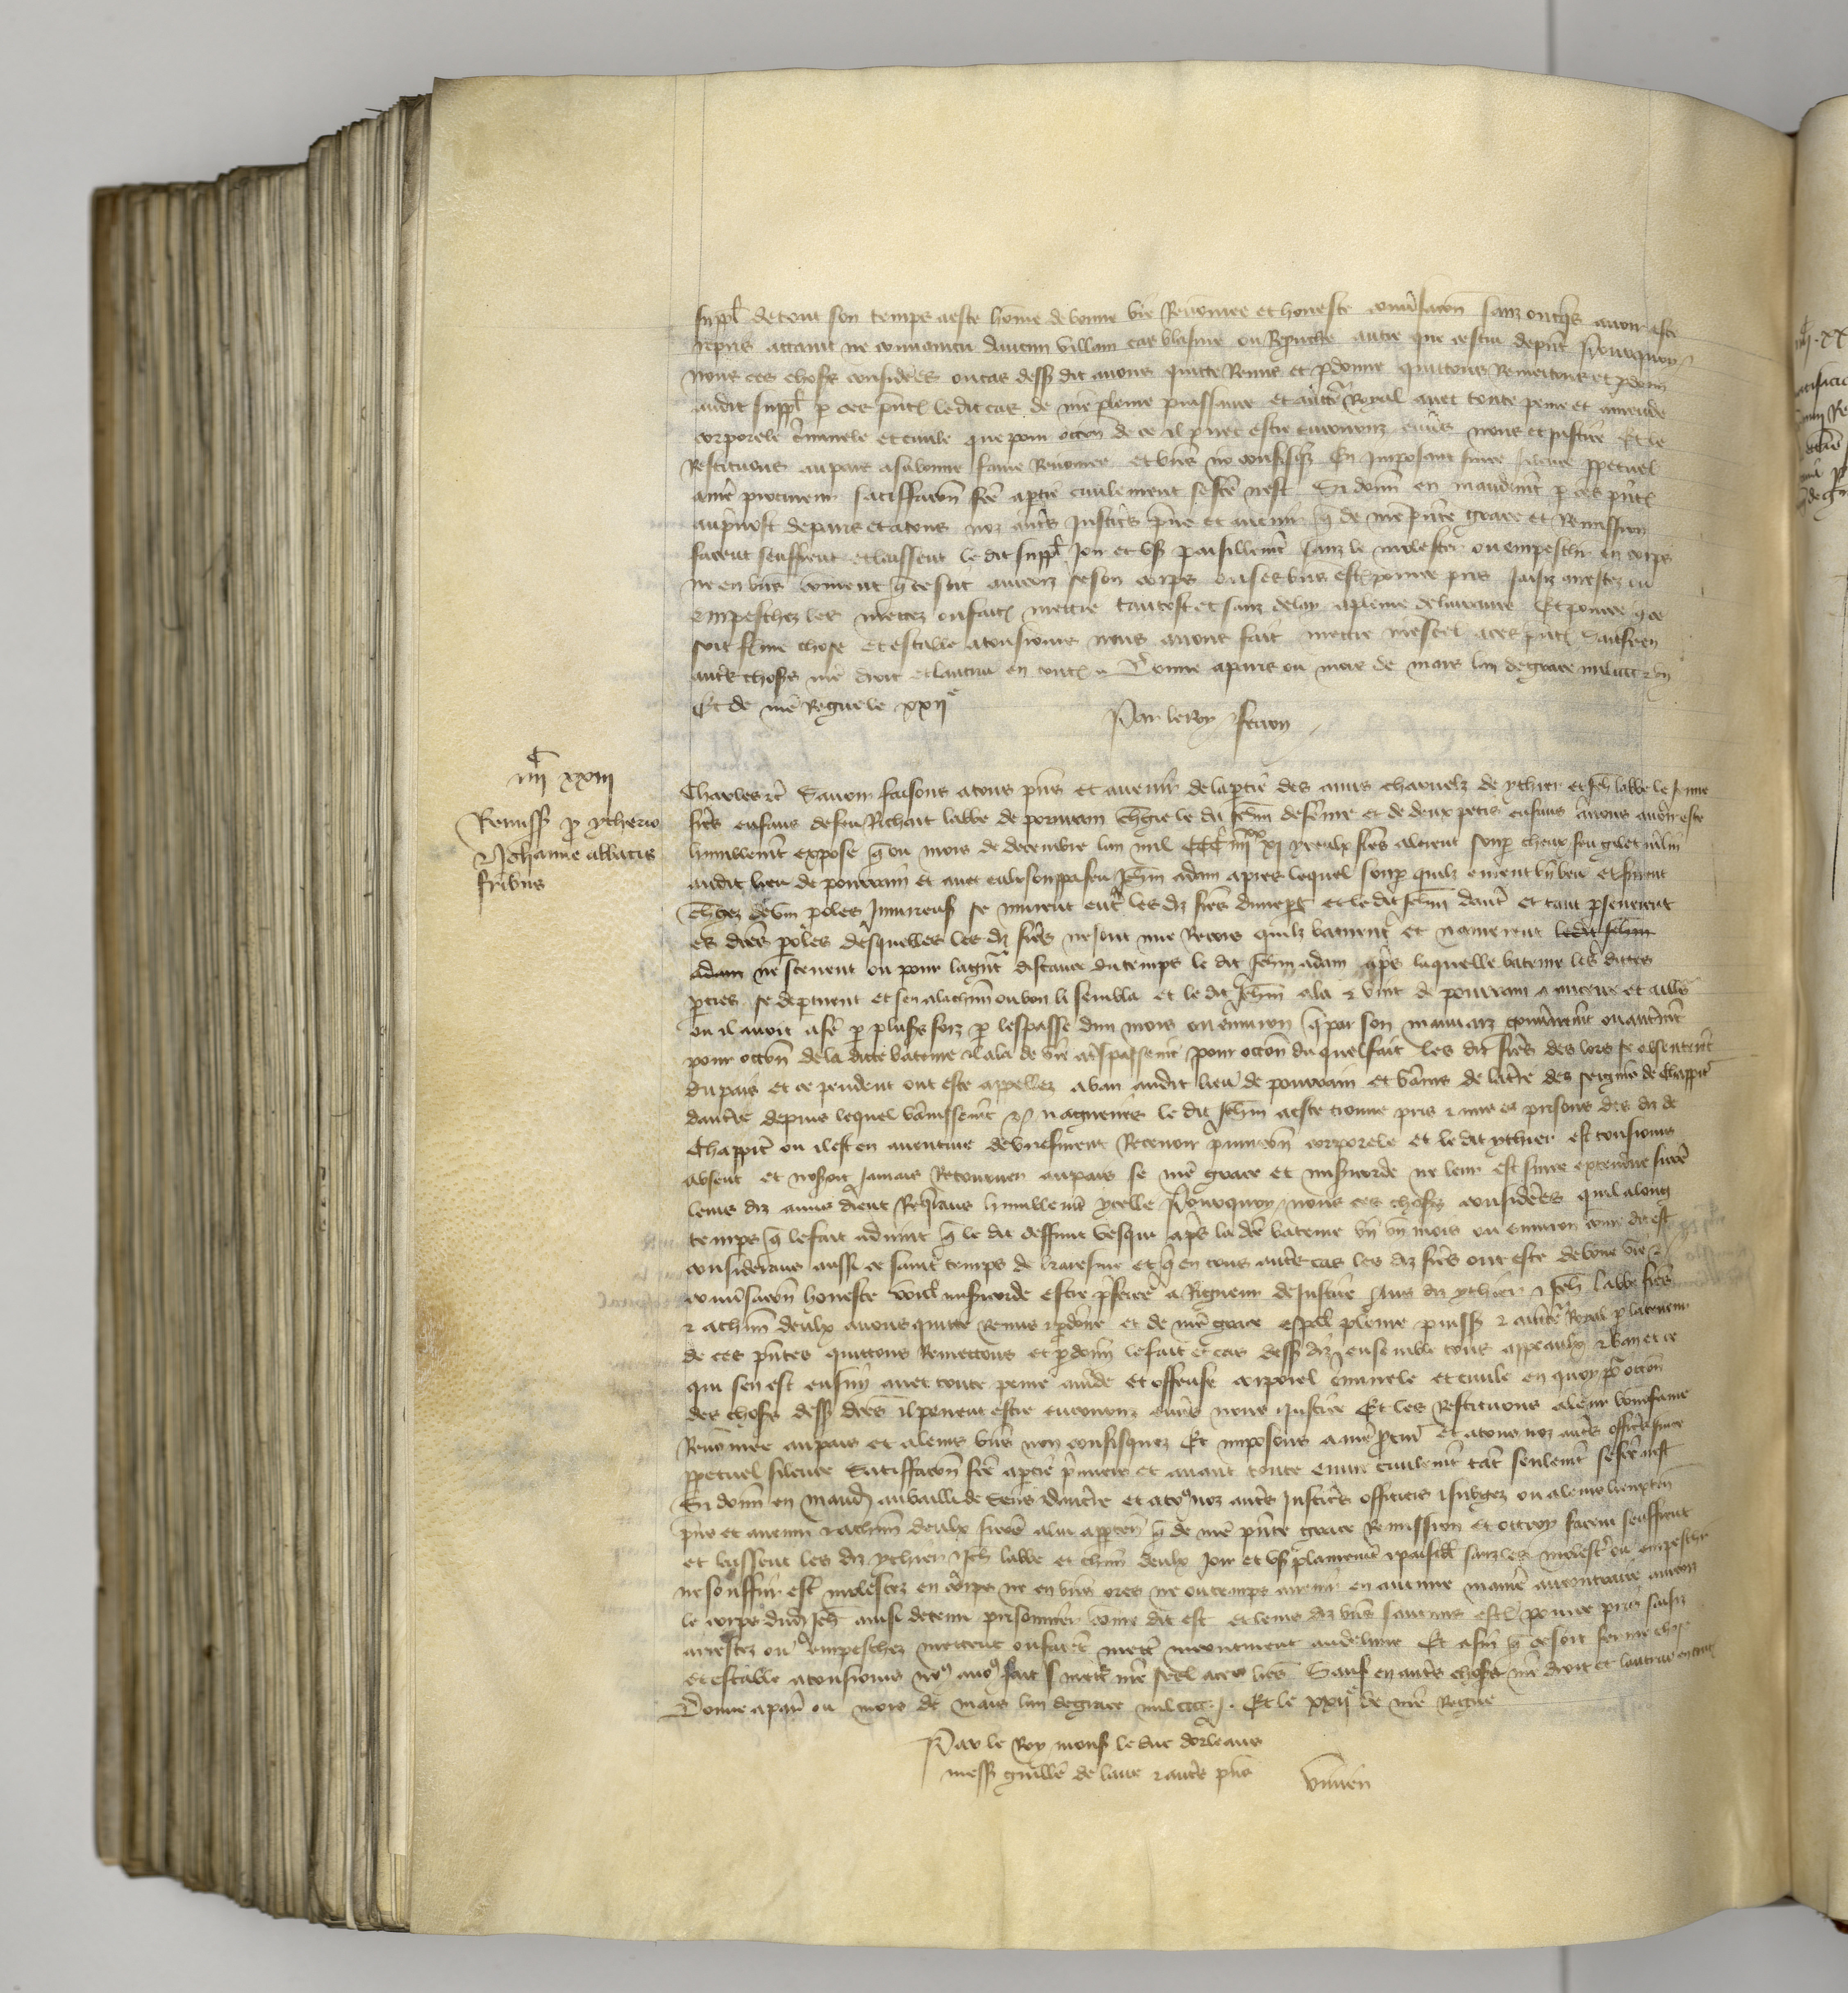 suppl de tout son temps a este home de bonne vie Renomee et honeste conversacon sanz oncqs avoir este
repris attaint ne convaincu daucun villain cas blasme ou Reprouche autre que cestui depnt Pourquoy
nous ces choses considerees ou cas dess dit avons quitte Remis et pdonne quittons Remettons et pdonn
audit suppl p ces pntes ledit cas de nre pleine puissance et auctte Royal avec toute peine et amende
corporele cminele et civile que pour occon de ce il p uet estre encouruz envs nous et justice Et le
Restituons au pais a sa bonne fame Renomee et biens no confisqz En Imposant sur ce silence ppetuel
a nre procureur satisfaccon fte a ptie civilement se fte nest Si donn en mandemt p ces pntes
au prevost de paris et a tous noz autrs Justicrs pns et avenir q de nre pnte grace et Remission
facent seuffrent et laissent le dit suppl Joir et us paisiblemt sanz le molester ou empescher en corps
ne en biens coment q ce soit aincois se son corps ou ses biens estoi pour ce pris saisiz arrestez ou
empeschez les mettez ou faites mettre tantost et sanz delay a pleine delivrance Et pour ce q ce
soit ferme chose et estable a tousiours nous avons fait mettre nre scel a ces pntes Sauf en
autrs choses nre droit et lautrui en toutes Donne a paris ou mois de mars lan de grace mil cccc et un
Et de nre Regne le xxiie
Par le Roy Ferron
iiiic xxiii
Remiss p ytherio
et Johanne abbatis
fribus
Charles etc Savoir faisons a tous pns et avenir de la ptie des amis charnelz de ythier et Jeh labbe le Jeune
frers enfans de feu Richart labbe de pourrain chgie le dit Jehan de feme et de deux petis enfans a nous avoir este
humblemt expose q ou mois de decembre lan mil CCC iiiixx xi yceulx frers alerent soup chiez feu gilet
audit lieu de pourrain et avec eulx soupa feu Jehan adam apres lequel soup quilz eurent bien beu et furent
chgez de vin poles Injurieuses se murent entre les diz frers dune pt et le dit Jehan dautre et tant pseverent
es dictes poles desquelles les diz frers ne sont mie Recors quilz batirent et navrerent ledit Jehan
adam ne scevent ou pour la grant distance du temps le dit Jehan adam aps laquelle bateure les dictes
pties se deptirent et sen ala chun ou bon li sembla et le dit Jehan ala et vint de pourrain a aucerre et aillrs
ou il avoit a fe p pluss foiz p lespasse dun mois ou environ q par son mauvaiz gouvernemt ou autremt
pour occon de la dicte bateure il ala de vie a trespassemt pour occon du quel fait les diz frers des lors se absenterent
du pais et ce pendent ont este appellez a ban audit lieu de pourrain et banis de la tre des seigneurs de Chappitre
daucerre depuis lequel banissemt et nagueres le dit Jehan a este trouve pris et mis es prisons des diz de
Chappitre ou il est en aventure de briefment Recevoir punicon corporele et le dit ythier est tousiours
absent et noseroit jamais Retourner au pais se nre grace et misericorde ne leur est sur ce extendue sicoe
leurs diz amis dient Requerans humblemt ycelle Pourquoy nous ces choses considerees quil a long
temps q le fait advint q le dit deffunt vesqui aps la dicte bateure bien un mois ou environ come dit est
considerans aussi ce saint temps de karesme et q en tous autrs cas les diz frers ont este de bone vie et
conversacon honeste voul misericorde estre preferee a Rigueur de Justice Aus diz ythier et Jeh labbe frers
et a chun deulx avons quitte Remis et pdonne et de nre grace espal pleine puiss et auctte Royal p la teneur
de ces pntes quittons Remettons et pdonn le fait et cas dess diz ensemble tous appeaulx et ban et ce
qui sen est ensuy avec toute peine amde et offense corporel cminele et civile en quoy pr occon
des choses dess dictes il peuent estre encouruz envs nous et justice Et les Restituons a leur bone fame
Renomee au pais et a leurs biens non confisquez Et imposons a nre procur et a tous noz autrs officirs sur ce
ppetuel silence Satisfaccon fte a ptie premiere et avant toute euvre civilemt tant seulemt se fte nest
Si donn en mand au bailli de Sens et daucerre et a tous noz autrs Justicrs officiers et subgez ou a leurs lieuxten
pns et avenir et a chun deulx sicoe a lui apptn q de nre pnte grace Remission et ottroy facent seuffrent
et laissent les diz ythier et Jeh labbe et chun deulx Joir et us plainemt et paisibl sanz les molester ou empescher
ne souffrir estre molestez en corps ne en biens ores ne ou temps avenir en aucune manie aucontraire aincois
le corps dudit Jeh ainsi detenu prisonnier come dit est et leurs diz biens saucuns estoi pour ce pris saisiz
arrestez ou empeschez mettent ou facent mettre incontinent au delivre Et afin q ce soit ferme chose
et estable a tousiours nous avons fait mettre nre scel a ces lres Sauf en autrs choses nre droit et lautrui en toutes
Donne a paris ou mois de mars lan de grace mil cccc et j Et le xxiie de nre Regne
Par le Roy mons le duc dorleans
mess guille de laire et autrs pns